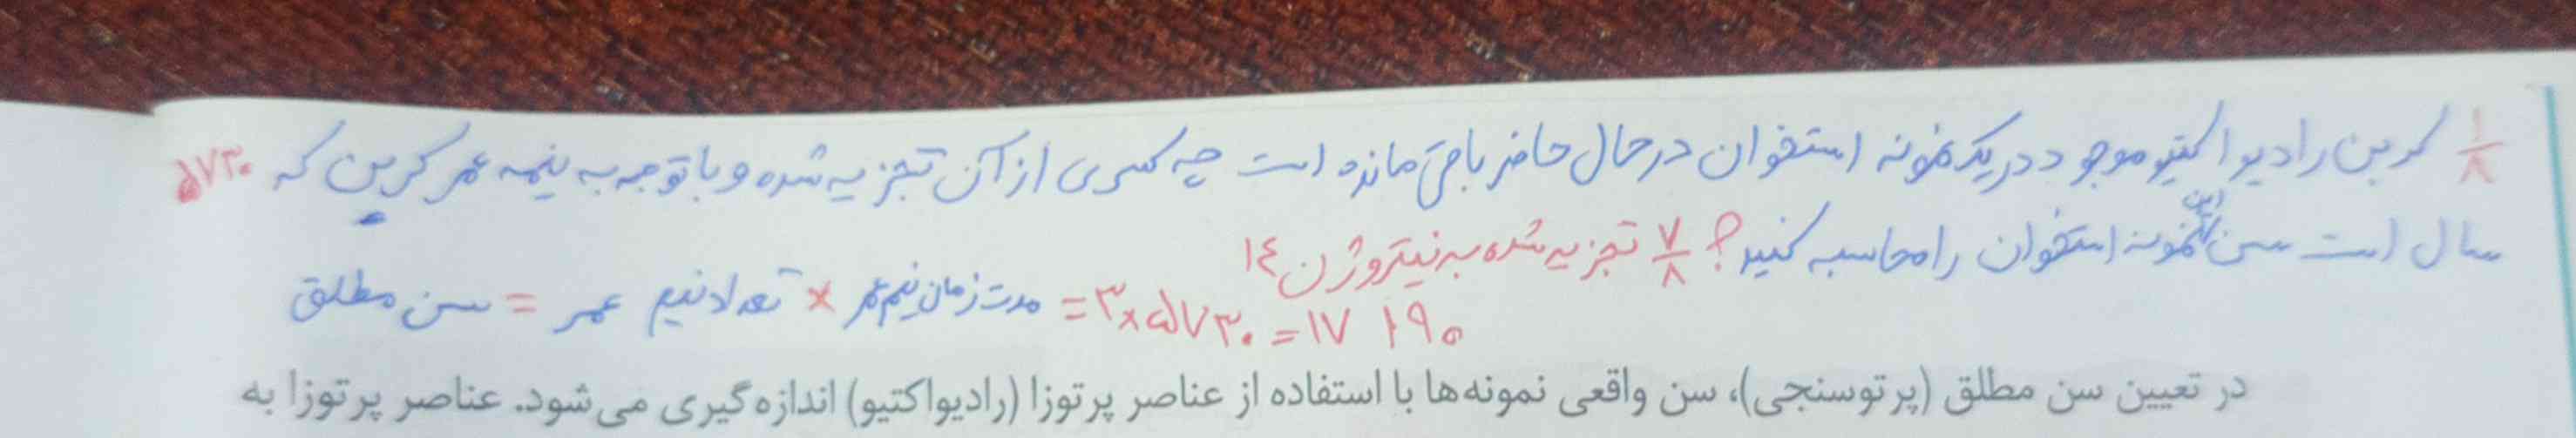 ۱/۸ کربن رادیواکتیو موجود در یک نمونه استخوان در حال حاضر باقی مانده است چه کسری از آن تجزیه شده و با توجه به نیمه عمر کربن که ۵۷۳۰
سال است سن این نمونه استخوان را محاسبه کنید؟ ۷/۸ تجزیه شده به نیتروژن ۱۴
سن مطلق = تعداد نیم عمر × مدت زمان نیم عمر = ۳×۵۷۳۰ = ۱۷۱۹۰
در تعیین سن مطلق (پرتوسنجی)، سن واقعی نمونه‌ها با استفاده از عناصر پرتوزا (رادیواکتیو) اندازه‌گیری می‌شود. عناصر پرتوزا به